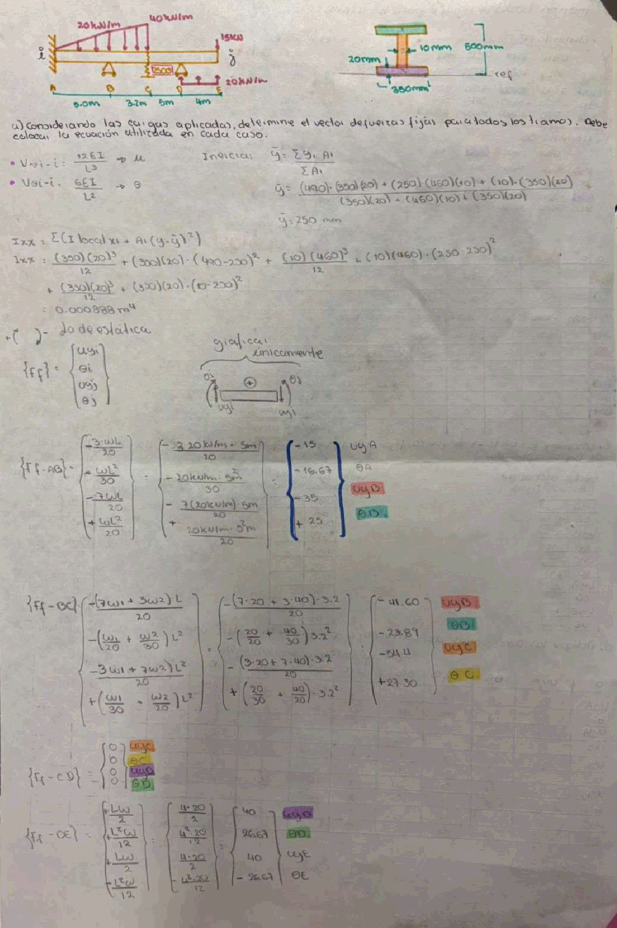 20kN/m
40kN/m
15kN
i
j
3500
20kN/m
A B C D E
5.0m 3.2m 5m 4m
20mm
10mm
500mm
ref
350mm
a) Considerando las cargas aplicadas, determine el vector de fuerzas fijas para todos los tramos. Debe
colocar la ecuación utilizada en cada caso.
• Vαi-i: 12EI/L³ → μ
• Vθi-i: 6EI/L² → θ
Inercia: ȳ = Σyi Ai / ΣAi
ȳ = (490)·(350)(20) + (250)(460)(10) + (10)·(350)(20) / (350)(20) + (460)(10) + (350)(20)
ȳ = 250 mm
Ixx = Σ(I local xi + Ai(y-ȳ)²)
Ixx = (350)(20)³/12 + (350)(20)·(490-250)² + (10)(460)³/12 + (10)(460)·(250-250)²
+ (350)(20)³/12 + (350)(20)·(10-250)²
= 0.000888 m⁴
+( )- lo de estática
graficar
únicamente
{Ff} = {uyi θi uyj θj}
θi + θj
uyi uyj
{Ff-AB} = {-3wL/20 -wL²/30 -7wL/20 +wL²/20} = {-3·20kN/m·5m/20 -20kN/m·5²m/30 -7(20kN/m)·5m/20 +20kN/m·5²m/20} = {-15 -16.67 -35 +25} uyA θA uyB θB
{Ff-BC} {-(7w1+3w2)L/20 -(w1/20+w2/30)L² -(3w1+7w2)L²/20 +(w1/30+w2/20)L²} = {-(7·20+3·40)·3.2/20 -(20/20+40/30)3.2² -(3·20+7·40)·3.2/20 +(20/30+40/20)·3.2²} = {-41.60 -23.89 -54.4 +27.30} uyB θB uyC θC
{Ff-CD} = {0 0 0 0} uyC θC uyD θD
{Ff-DE} = {+Lw/2 +L²w/12 +Lw/2 -L²w/12} = {4·20/2 4²·20/12 4·20/2 -4²·20/12} = {40 26.67 40 -26.67} uyD θD uyE θE